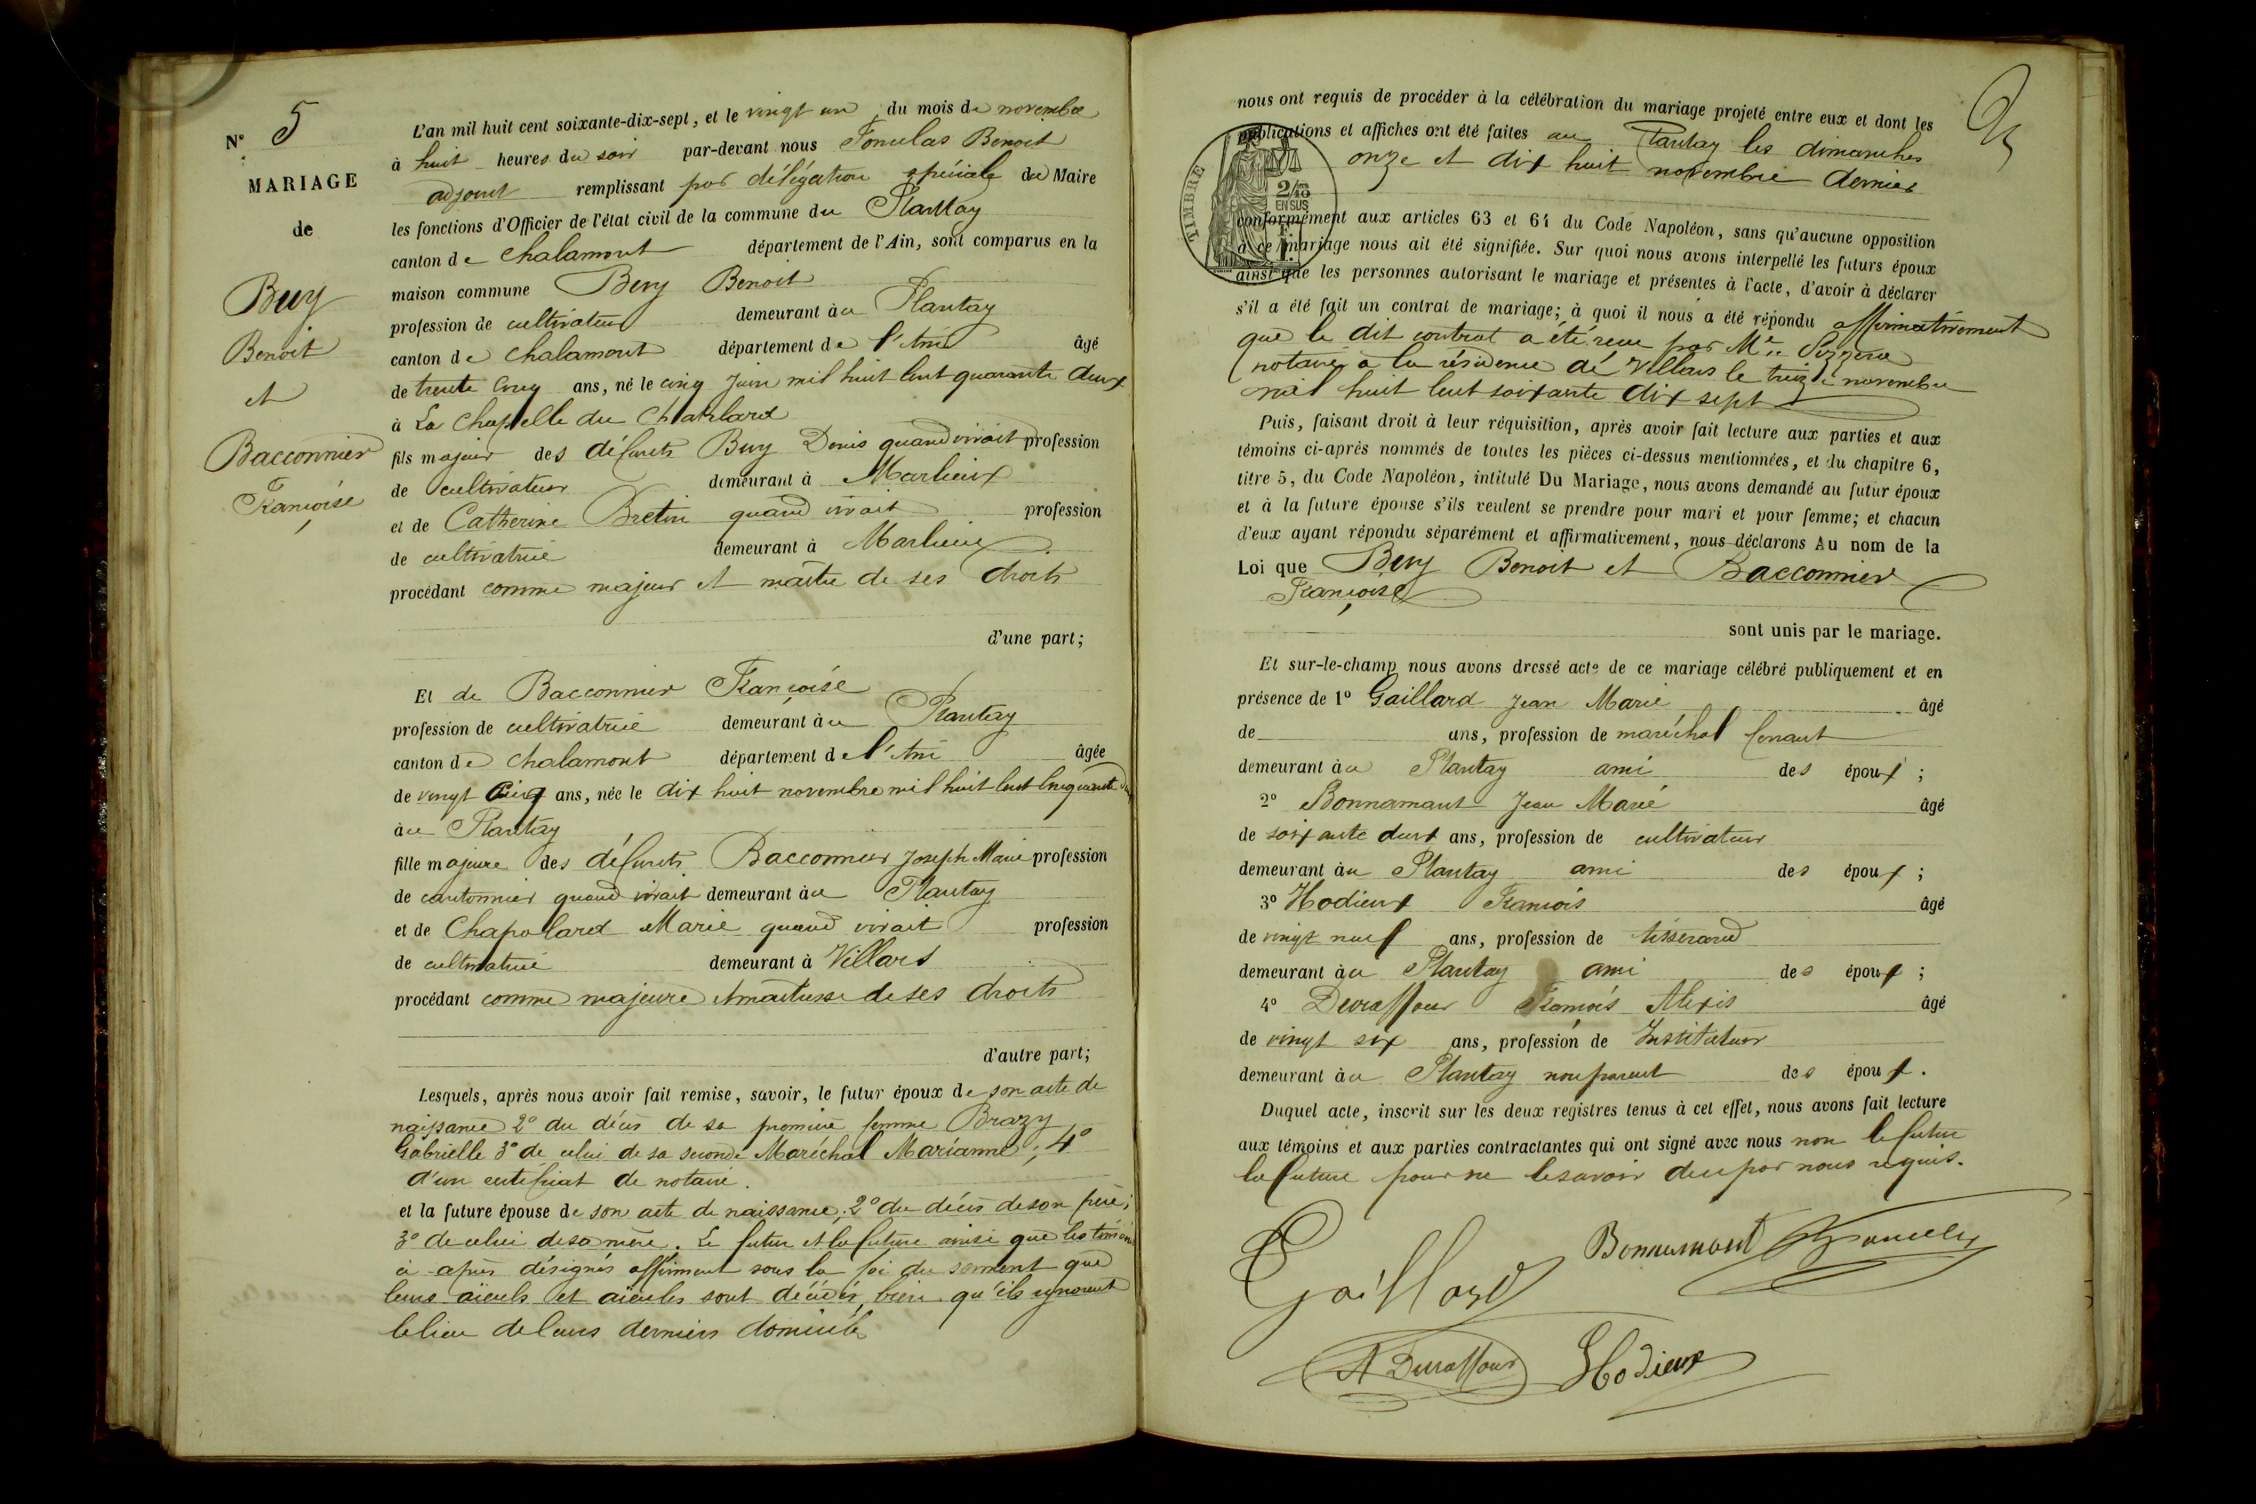 N° 5
MARIAGE
de
Buy
Benoit
et
Bacconnier
Françoise
L'an mil huit cent soixante-dix-sept, et le vingt un du mois de novembre
à huit heures du soir par-devant nous Benoit
adjoint remplissant par délégation spéciale du Maire
les fonctions d'Officier de l'état civil de la commune du Plantay
canton de Chalamont département de l'Ain, sont comparus en la
maison commune Buy Benoit
profession de cultivateur demeurant au Plantay
canton de Chalamont département de l'Ain âgé
de trente cinq ans, né le cinq Juin mil huit cent quarante deux
à La Chapelle du Chatelard
fils majeur des défunts Buy Denis quand vivait profession
de cultivateur demeurant à Marlieux
et de Catherine Bretin quand vivait profession
de cultivatrice demeurant à Marlieux
procédant comme majeur et maître de ses droits
d'une part;
Et de Bacconnier Françoise
profession de cultivatrice demeurant au Plantay
canton de Chalamont département de l'Ain âgée
de vingt cinq ans, née le dix huit novembre mil huit cent cinquante deux
au Plantay
fille majeure des défunts Bacconnier Joseph Marie profession
de cantonnier quand vivait demeurant au Plantay
et de Chapolard Marie quand vivait profession
de cultivatrice demeurant à Villars
procédant comme majeure et maitresse de ses droits
d'autre part;
Lesquels, après nous avoir fait remise, savoir, le futur époux de son acte de
naissance 2° du décès de sa première femme Brazy
Gabrielle 3° de celui de sa seconde Maréchal Marianne; 4°
d'un certificat de notaire.
et la future épouse de son acte de naissance; 2° du décès de son père;
3° de celui de sa mère. Le futur et la future ainsi que les témoins
ci-après désignés affirment sous la foi du serment que
leurs aïeuls et aïeules sont décédés, bien qu'ils ignorent
le lieu de leurs derniers domiciles
nous ont requis de procéder à la célébration du mariage projeté entre eux et dont les
publications et affiches ont été faites au Plantay les dimanches
onze et dix huit novembre dernier
TIMBRE
2/10 EN SUS
conformément aux articles 63 et 64 du Code Napoléon, sans qu'aucune opposition
à ce mariage nous ait été signifiée. Sur quoi nous avons interpellé les futurs époux
ainsi que les personnes autorisant le mariage et présentes à l'acte, d'avoir à déclarer
s'il a été fait un contrat de mariage; à quoi il nous a été répondu affirmativement
que le dit contrat a été reçu par Me
notaire à la résidence de Villars le treize novembre
mil huit cent soixante dix sept
Puis, faisant droit à leur réquisition, après avoir fait lecture aux parties et aux
témoins ci-après nommés de toutes les pièces ci-dessus mentionnées, et du chapitre 6,
titre 5, du Code Napoléon, intitulé Du Mariage, nous avons demandé au futur époux
et à la future épouse s'ils veulent se prendre pour mari et pour femme; et chacun
d'eux ayant répondu séparément et affirmativement, nous déclarons Au nom de la
Loi que Buy Benoit et Bacconnier
Françoise
sont unis par le mariage.
Et sur-le-champ nous avons dressé acte de ce mariage célébré publiquement et en
présence de 1° Gaillard Jean Marie âgé
de ans, profession de maréchal ferrant
demeurant au Plantay ami des époux ;
2° Bonnamant Jean Marie âgé
de soixante deux ans, profession de cultivateur
demeurant au Plantay ami des époux ;
3° Hodieux François âgé
de vingt neuf ans, profession de tisserand
demeurant au Plantay ami des époux ;
4° Duraffour François Alexis âgé
de vingt six ans, profession de Instituteur
demeurant au Plantay non parent des époux .
Duquel acte, inscrit sur les deux registres tenus à cet effet, nous avons fait lecture
aux témoins et aux parties contractantes qui ont signé avec nous non le futur
la future pour ne le savoir de ce par nous requis.
Gaillard
Bonnamant
A Duraffour
Hodieux